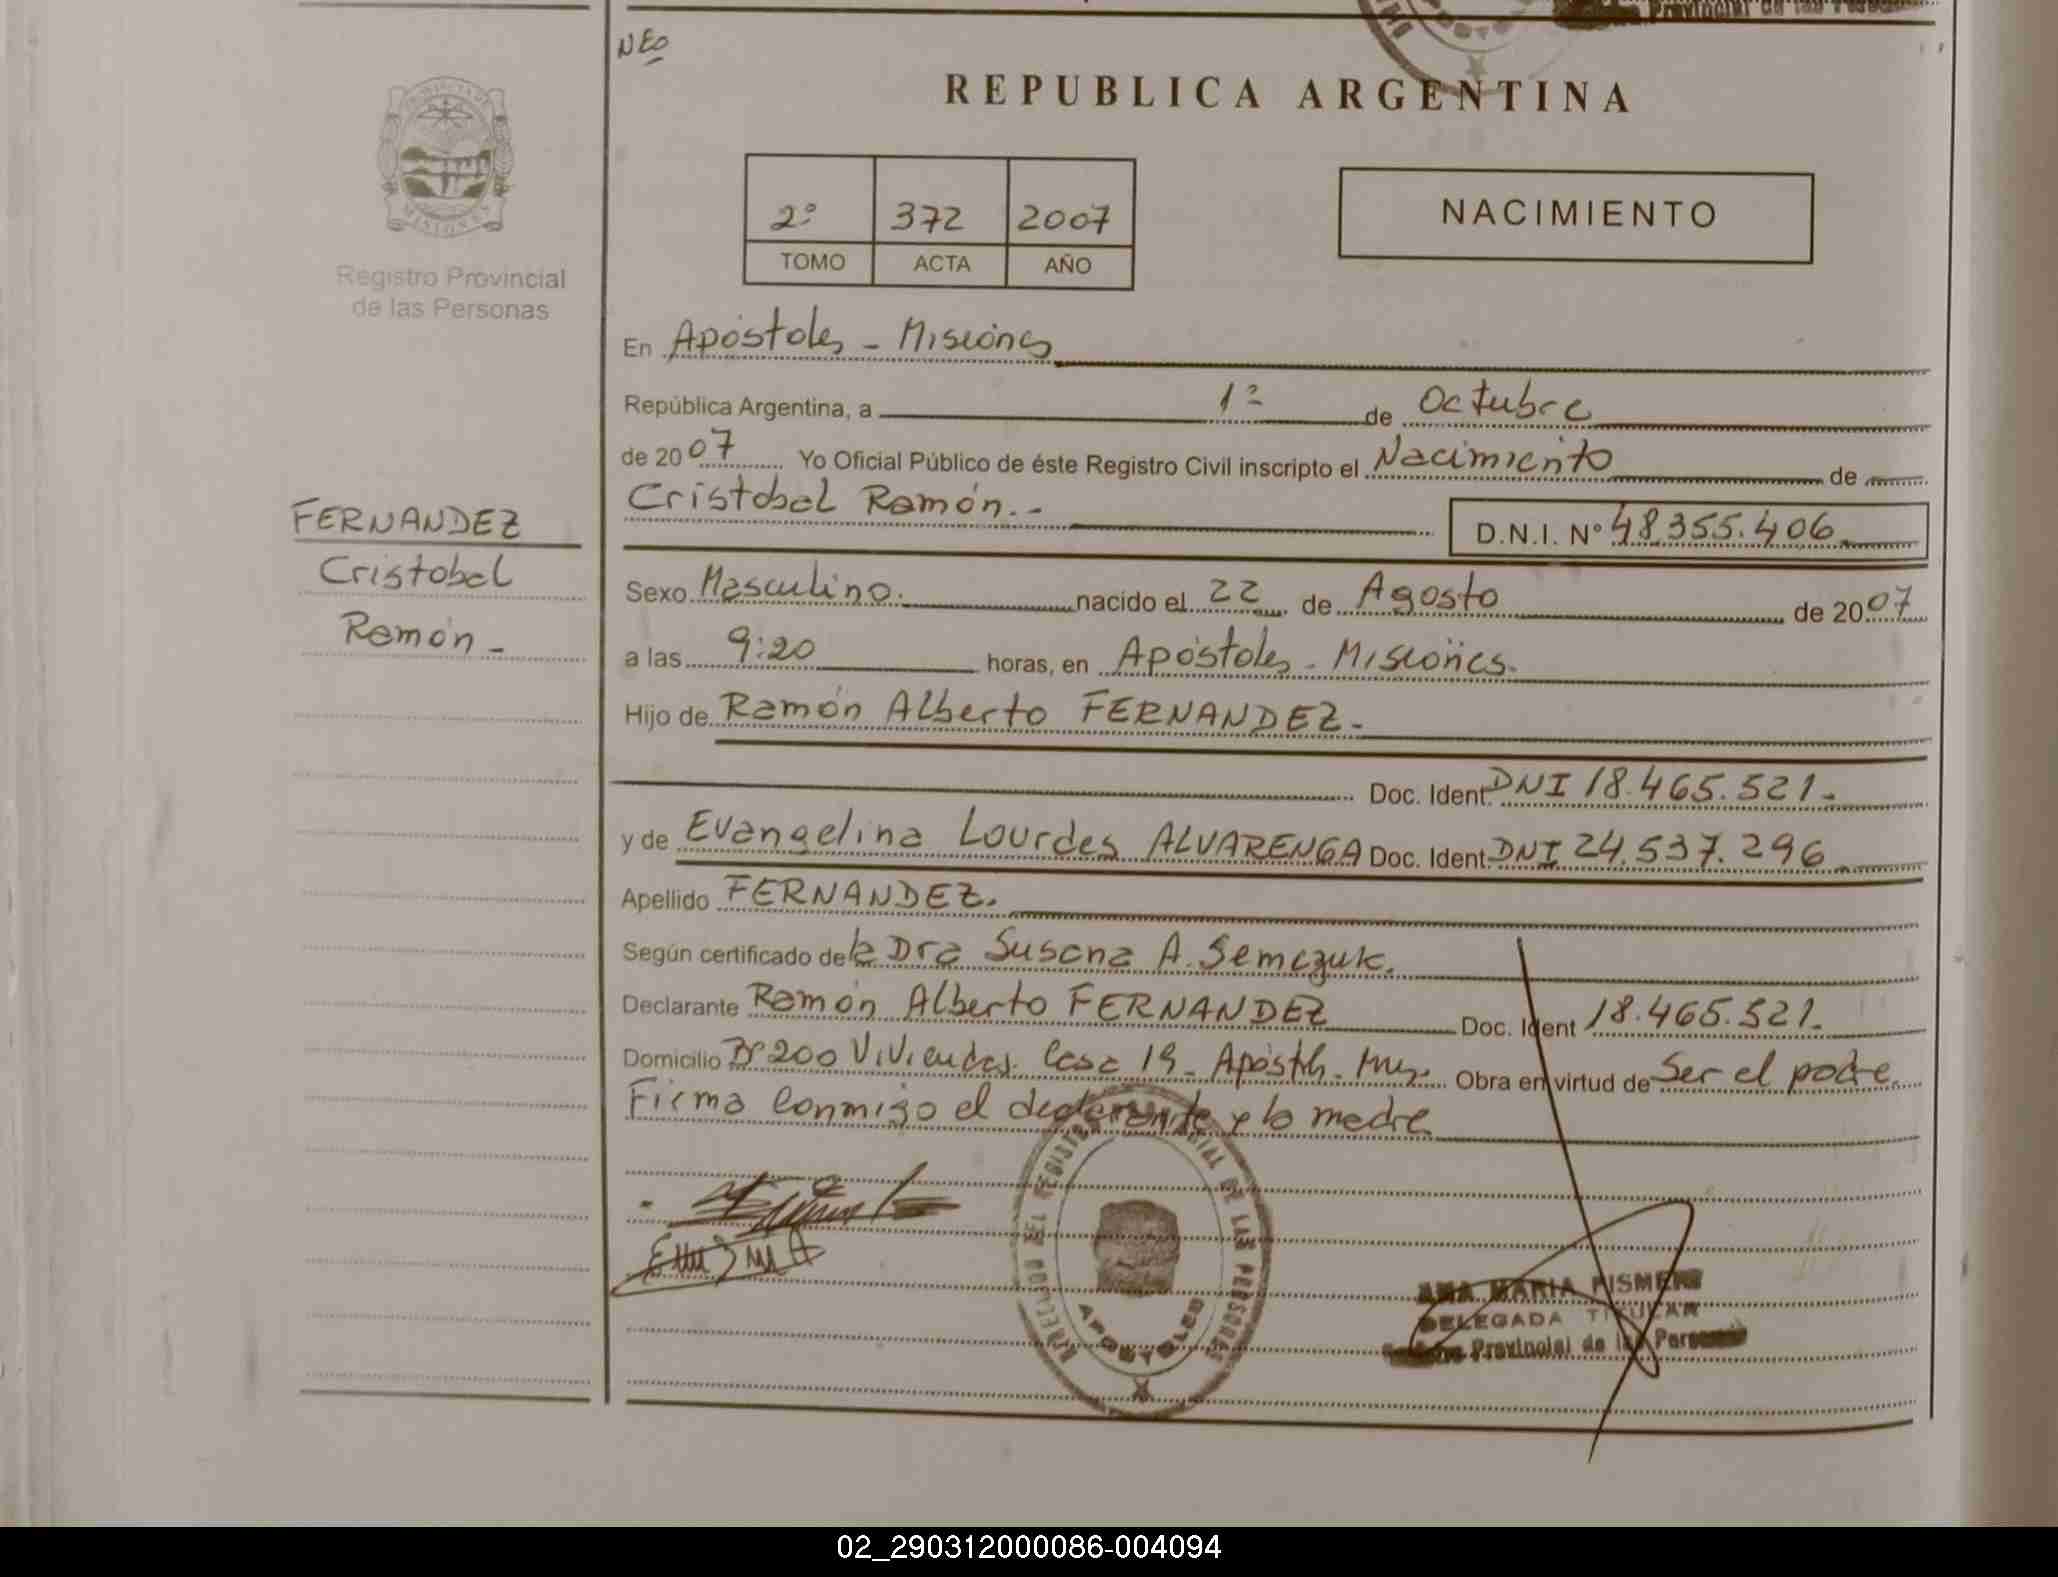 Provincial de las Personas
NEO
REPUBLICA ARGENTINA
PROVINCIA DE
MISIONES
Registro Provincial
de las Personas
2º 372 2007
TOMO ACTA AÑO
NACIMIENTO
En Apóstoles - Misiones
República Argentina, a 1º de Octubre
de 2007 Yo Oficial Público de éste Registro Civil inscripto el Nacimiento de
Cristobal Ramón.- D.N.I. Nº 48.355.406
FERNANDEZ
Cristobal
Ramón -
Sexo Masculino. nacido el 22 de Agosto de 2007
a las 9:20 horas, en Apóstoles - Misiones.
Hijo de Ramón Alberto FERNANDEZ -
Doc. Ident. DNI 18.465.521.-
y de Evangelina Lourdes ALVARENGA Doc. Ident. DNI 24.537.296
Apellido FERNANDEZ.
Según certificado de la Dra Susana A. Semczuk.
Declarante Ramón Alberto FERNANDEZ Doc. Ident 18.465.521.
Domicilio Bº 200 Viviendas. Casa 19 - Apóstls - Mnes. Obra en virtud de Ser el padre
Firma conmigo el declarante y la madre
DEL REGISTRO PROVINCIAL DE LAS PERSONAS
APOSTOLES
ANA MARIA
DELEGADA TITULAR
Provincial de las Personas
02_290312000086-004094